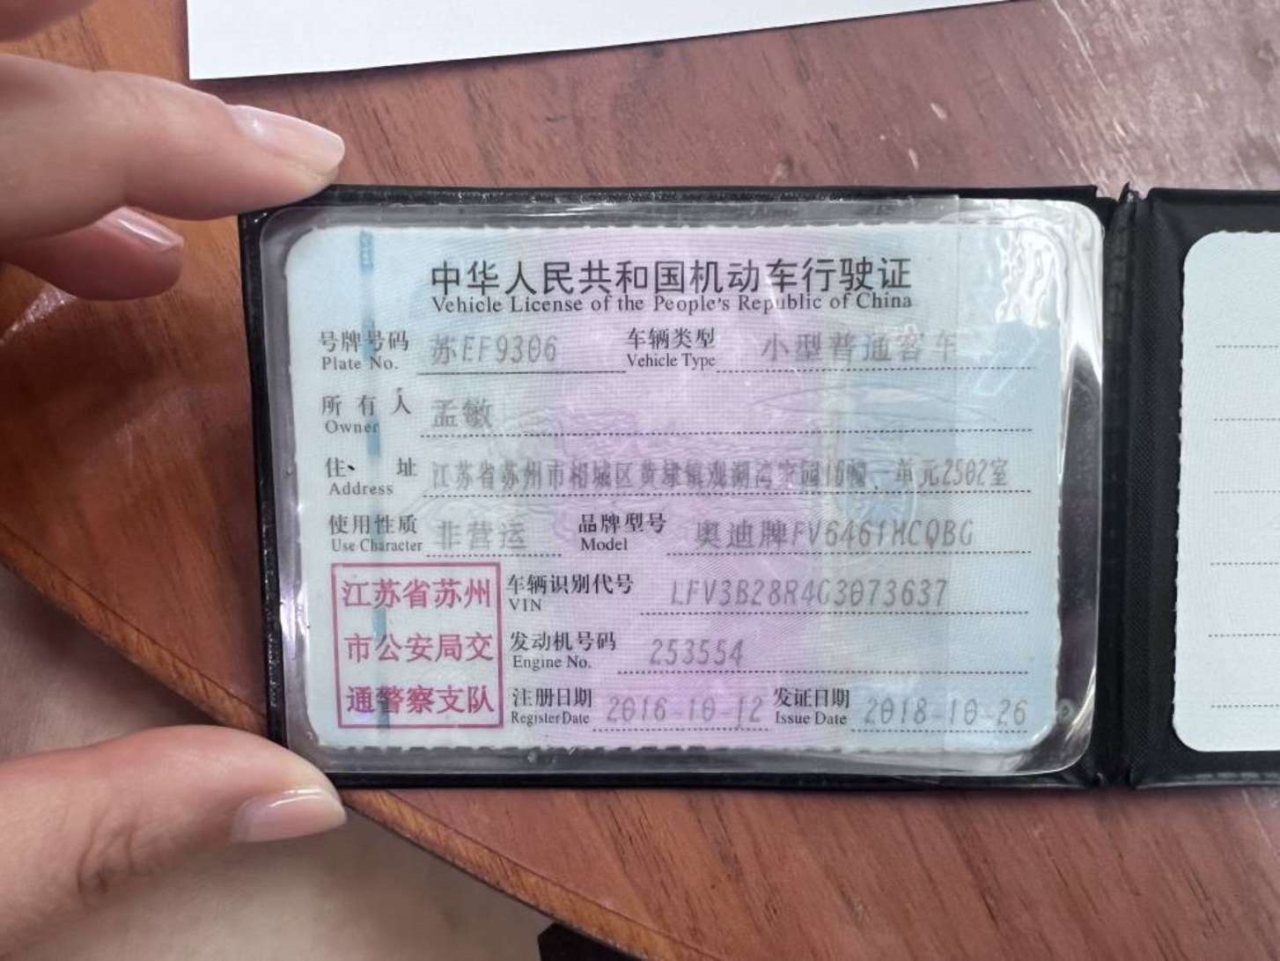 中华人民共和国机动车行驶证
Vehicle License of the People's Republic of China
号牌号码 苏EF9306 车辆类型 小型普通客车
Plate No. Vehicle Type
所有人 孟敏
Owner
住址 江苏省苏州市相城区黄埭镇观湖湾家园10幢一单元2502室
Address
使用性质 非营运 品牌型号 奥迪牌FV6461HCQBG
Use Character Model
江苏省苏州
市公安局交
通警察支队
车辆识别代号 LFV3B28R4G3073637
VIN
发动机号码 253554
Engine No.
注册日期 2016-10-12 发证日期 2018-10-26
Register Date Issue Date